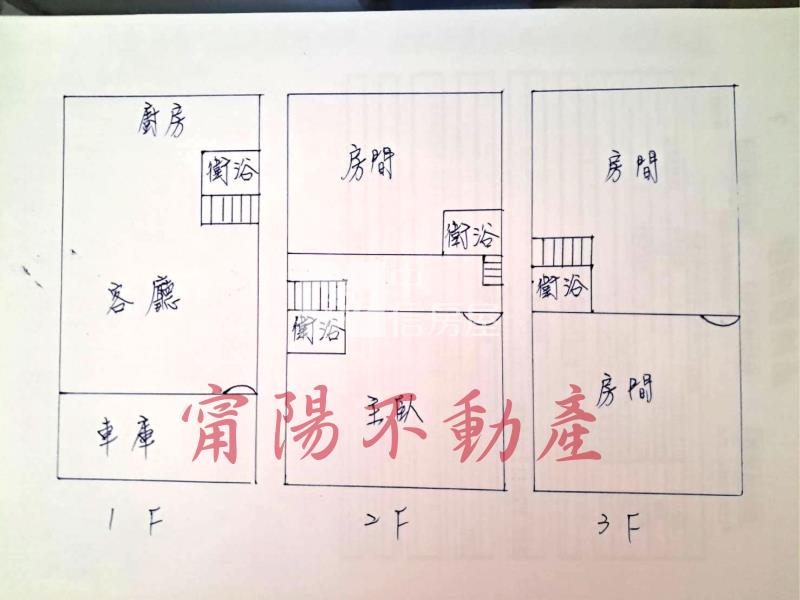 廚房
衛浴
客廳
車庫
1F
房間
衛浴
衛浴
主臥
2F
房間
衛浴
房間
3F
信房屋
甯陽不動產